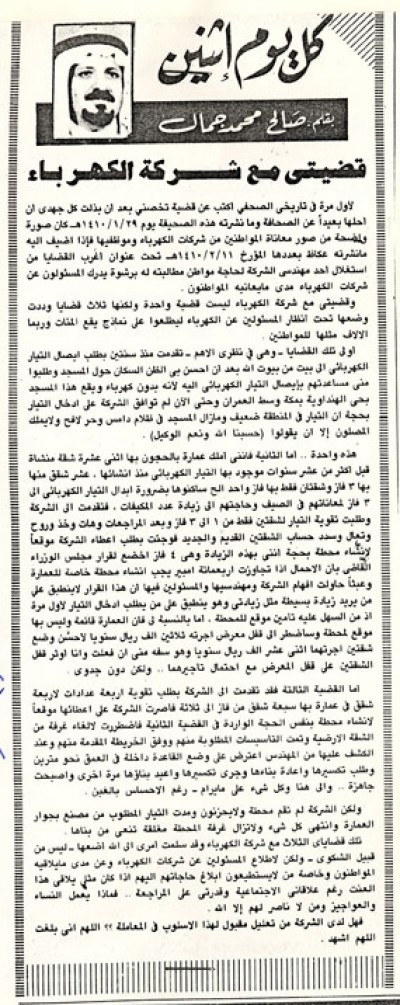 كل يوم إثنين
بقلم: صالح محمد جمال
قضيتى مع شركة الكهرباء
لاول مرة في تاريخي الصحفي اكتب عن قضية تخصني بعد ان بذلت كل جهدى ان
احلها بعيداً عن الصحافة وما نشرته هذه الصحيفة يوم ١٤١٠/١/٢٩هـ كان صورة
واضحة من صور معاناة المواطنين من شركات الكهرباء وموظفيها فإذا اضيف اليه
مانشرته عكاظ بعددها المؤرخ ١٤١٠/٢/١١هـ تحت عنوان أغرب القضايا من
استغلال احد مهندسي الشركة لحاجة مواطن مطالبته له برشوة يدرك المسئولون عن
شركات الكهرباء مدى مايعانيه المواطنون .
وقضيتي مع شركة الكهرباء ليست قضية واحدة ولكنها ثلاث قضايا وددت
وضعها تحت أنظار المسئولين عن الكهرباء ليطلعوا على نماذج يقع المئات وربما
الالاف مثلها للمواطنين .
اولى تلك القضايا - وهي في نظرى الاهم - تقدمت منذ سنتين بطلب ايصال التيار
الكهربائى الى بيت من بيوت الله بعد ان احسن بي الظن السكان حول المسجد وطلبوا
منى مساعدتهم بإيصال التيار الكهربائى اليه لأنه بدون كهرباء ويقع هذا المسجد
بحي الهنداوية بمكة وسط العمران وحتى الآن لم توافق الشركة على ادخال التيار
بحجة ان التيار في المنطقة ضعيف ومازال المسجد في ظلام دامس وحر لافح ولايملك
المصلون إلا ان يقولوا (حسبنا الله ونعم الوكيل) .
هذه واحدة .. اما الثانية فاننى املك عمارة بالحجون بها اثنى عشرة شقة منشأة
قبل اكثر من عشر سنوات موجود بها التيار الكهربائى منذ انشائها ، عشر شقق منها
بها ٣ فاز وشقتان فقط بها فاز واحد الح ساكنوها بضرورة ابدال التيار الكهربائى الى
٣ فاز لمعاناتهم في الصيف وحاجتهم الى زيادة عدد المكيفات ، فتقدمت الى الشركة
وطلبت تقوية التيار لشقتين فقط من ١ الى ٣ فاز وبعد المراجعات وهات وخذ وروح
وتعال وسدد حساب الشقتين القديم والجديد فوجئت بطلب اعطاء الشركة موقعاً
لإنشاء محطة بحجة اننى بهذه الزيادة وهى ٤ فاز اخضع لقرار مجلس الوزراء
القاضى بان الاحمال اذا تجاوزت اربعمائة امبير يجب انشاء محطة خاصة للعمارة
وعبثاً حاولت افهام الشركة ومهندسيها والمسئولين فيها ان هذا القرار لاينطبق على
من يريد زيادة بسيطة مثل زيادتى وهو ينطبق على من يطلب ادخال التيار لأول مرة
اذ من السهل عليه تامين موقع للمحطة . اما بالنسبة لى فان العمارة قائمة وليس بها
موقع لمحطة وساضطر الى قفل معرض اجرته ثلاثين الف ريال سنويا لاحسّن وضع
شقتين اجرتهما اثنى عشر الف ريال سنويا وهو سفه منى ان فعلت وانا اوثر قفل
الشقتين على قفل المعرض مع احتمال تأجيرهما .. ولكن دون جدوى .
اما القضية الثالثة فقد تقدمت الى الشركة بطلب تقوية اربعة عدادات لاربعة
شقق في عمارة بها سبعة شقق من فاز الى ثلاثة فأصرت الشركة على اعطائها موقعاً
لانشاء محطة بنفس الحجة الواردة في القضية الثانية فاضطررت لالغاء غرفة من
الشقة الارضية وتمت التاسيسات المطلوبة منهم ووفق الخريطة المقدمة منهم وعند
الكشف عليها من المهندس اعترض على وضع القاعدة داخلة في العمق نحو مترين
وطلب تكسيرها واعادة بناءها وجرى تكسيرها واعيد بناؤها مرة اخرى واصبحت
جاهزة .. والى هنا وكل شيء على مايرام - رغم الاحساس بالغبن .
ولكن الشركة لم تقم محطة ولايحزنون ومدت التيار المطلوب من مصنع بجوار
العمارة وانتهى كل شيء ولاتزال غرفة المحطة مغلقة تنعى من بناها .
تلك قضاياى الثلاث مع شركة الكهرباء وقد سلمت أمرى الى الله اضعها - ليس من
قبيل الشكوى - ولكن لاطلاع المسئولين عن شركات الكهرباء وعن مدى مايلاقيه
المواطنون وخاصة من لايستطيعون ابلاغ حاجاتهم اليهم اذا كان مثلى يلاقى هذا
العنت رغم علاقاتى الاجتماعية وقدرتى على المراجعة .. فماذا يعمل النساء
والعواجيز ومن لا ناصر لهم إلا الله .
فهل لدى الشركة من تعليل مقبول لهذا الاسلوب في المعاملة ؟؟ اللهم انى بلغت
اللهم اشهد .